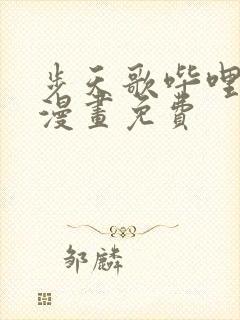 步天歌哔哩
漫畫免費
邹麟